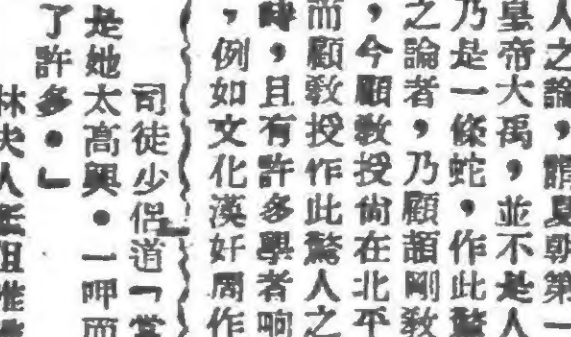 人之論，謂夏朝第一
皇帝大禹，並不是人
乃是一條蛇，作此驚
之論者，乃顧頡剛敎
，今顧敎授尙在北平
而顧敎授作此驚人之
時，且有許多學者响
，例如文化漢奸周作
司徒少侶道「當
是她太高興。一呷而
了許多。」
林夫人